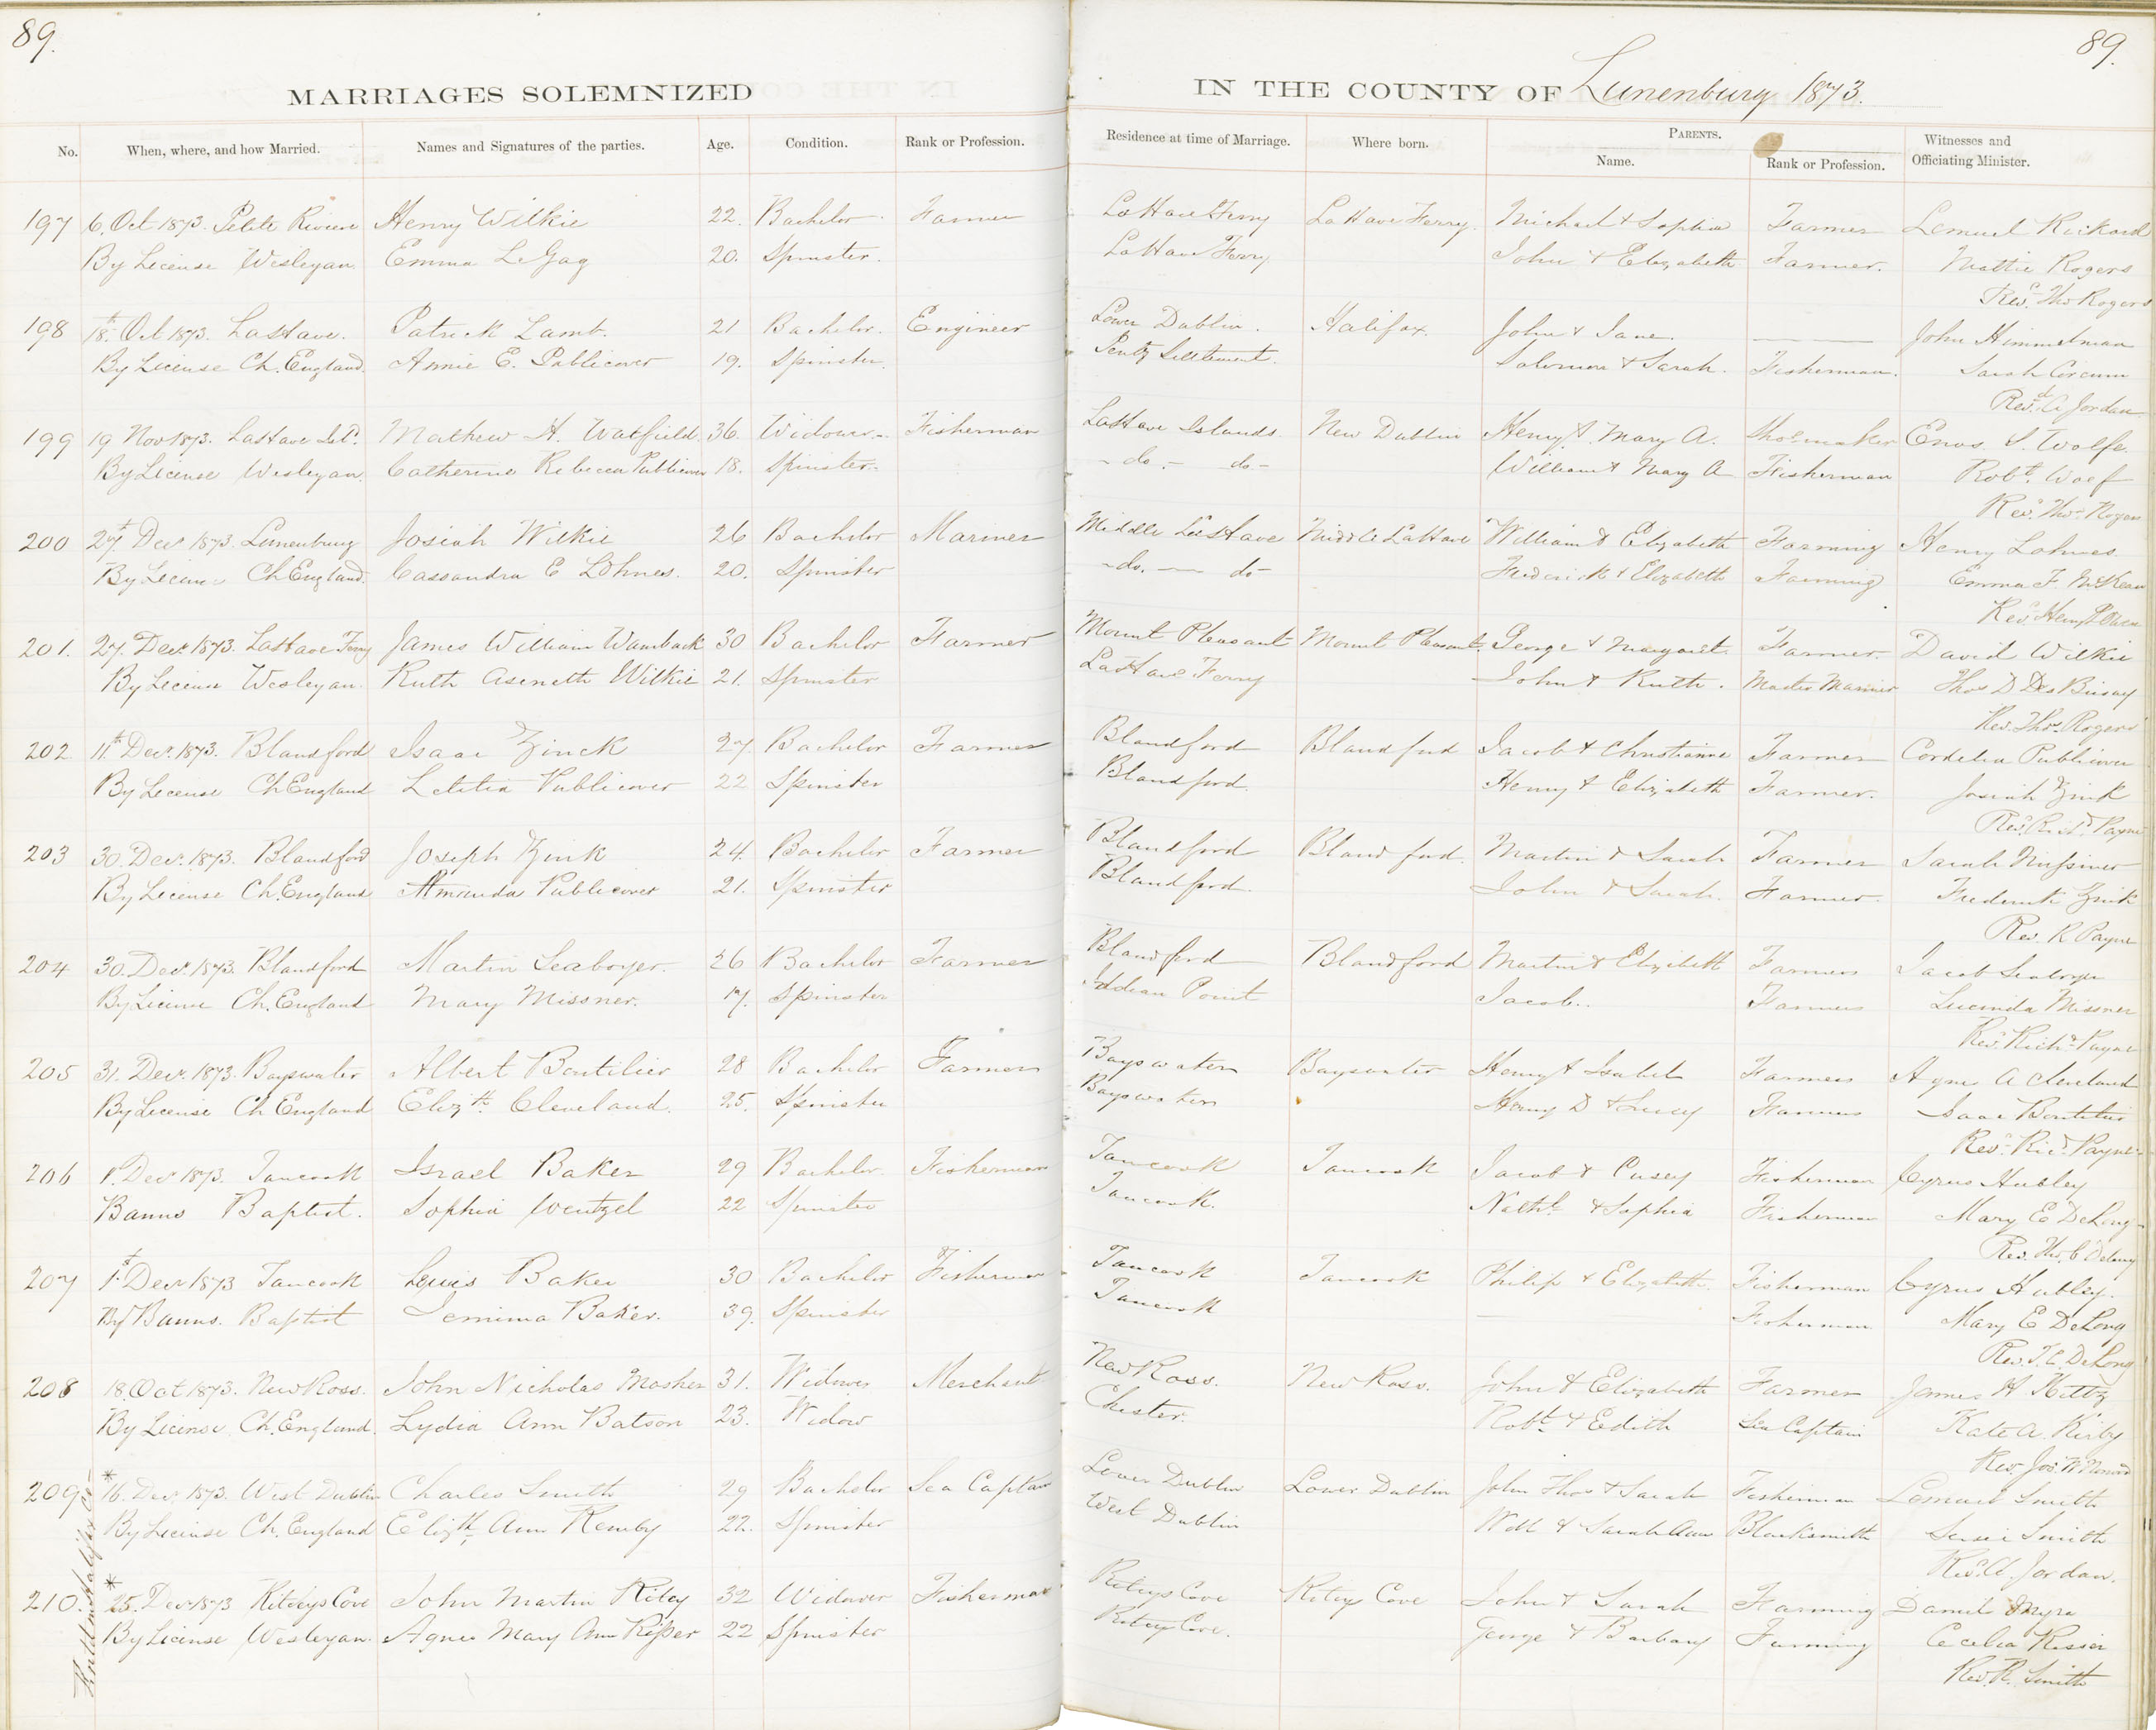 89.
89.
MARRIAGES SOLEMNIZED IN THE COUNTY OF Lunenburg 1873.
No. When, where, and how Married. Names and Signatures of the parties. Age. Condition. Rank or Profession. Residence at time of Marriage. Where born. PARENTS. Name. Rank or Profession. Witnesses and Officiating Minister.
197 6, Oct 1873. Petite Riviere Henry Wilkie 22. Bachelor Farmer LaHave Ferry LaHave Ferry. Michael & Sophia Farmer Lemuel
By License Wesleyan Emma LeGag 20. Spinster. LaHave Ferry John & Elizabeth Farmer. Mattie Rogers
Revd. Thos Rogers
198 18th Oct 1873. LaHave. Patrick Lamb. 21 Bachelor. Engineer Lower Dublin. Halifax. John & Jane — John Himmelman
By License Ch. England. Annie E. Publicover 19. Spinster. Pentz Settlement. Solomon & Sarah. Fisherman. Sarah Corcum
Revd. A Jordan
199 19 Nov 1873. LaHave Isld. Mathew H. Watfield. 36. Widower Fisherman LaHave Islands New Dublin Henry & Mary A. Shoemaker Enos S. Wolfe.
By License Wesleyan. Catherine Rebecca Publicover 18. Spinster. - do. - do - William & Mary A Fisherman Robt. Woef
Revd. Thos. Rogers
200 27th Decr 1873. Lunenburg Josiah Wilkie 26 Bachelor Mariner Middle LaHave Middle LaHave William & Elizabeth Farming Henry Lohnes
By License Ch England. Cassandra E LOhnes. 20. Spinster - do. — do - Frederick & Elizabeth Farming Emma F. McKean
Revd. Henry Owen
201. 27. Decr 1873. LaHave Ferry James William Wamback 30 Bachelor Farmer Mount Pleasant Mount Pleasant. George & Margaret. Farmer. David Wilkie
By License Wesleyan. Ruth Aseneth Wilkie 21. Spinster LaHave Ferry John & Ruth. Master Mariner Thos D DesBrisay
Rev. Thos. Rogers
202 11th Decr. 1873. Blandford Isaac Zinck 27. Bachelor Farmer Blandford Blandford Jacob & Christianne Farmer Cordelia Publicover
By License Ch England Letitia Publicover 22 Spinster Blandford. Henry & Elizabeth Farmer. Josiah Zink
Revd. Richd. Payne
203 30. Decr. 1873. Blandford Joseph Zink 24. Bachelor Farmer Blandford Blandford. Martin & Sarah Farmer Sarah
By License Ch. England Amanda Publicover 21. Spinster Blandford. John & Sarah. Farmer. Frederick Zink
Rev. R Payne
204 30. Decr. 1873. Blandford Martin Seaboyer. 26 Bachelor Farmer Blandford Blandford Martin & Elizabeth Farmer Jacob Seaboyer
By License Ch. England Mary Missner. 17. Spinster Point Jacob.. Farmer Lucinda Missner
Revd. Richd. Payne
205 31. Decr. 1873. Bayswater Albert Boutilier 28 Bachelor Farmer Bayswater Bayswater Henry & Isabel Farmer A Cleveland
By License Ch England Elizth. Cleveland. 25. Spinster Bayswater Henry D & Lucy Farmer Isaac Boutilier
Revd. Ricd. Payne
206 1. Decr 1873. Tancook Israel Baker 29 Bachelor Fisherman Tancook Tancook Jacob & Cusey Fisherman Cyrus Hubley
Banns Baptist. Sophia Wentzel 22 Spinster Tancook. Nathl. & Sophia Fisherman Mary E DeLong
Rev. Thos. C Delong
207 1st Decr 1873 Tancook Lewis Baker 30 Bachelor Fisherman Tancook Tancook Philip & Elizabeth. Fisherman Cyrus Hubley.
By Banns. Baptist Jemima Baker. 39. Spinster Tancook — Fisherman Mary E DeLong
Rev. T. C. DeLong
208 18. Oct 1873. New Ross. John Nicholas Mosher 31. Widower Merchant New Ross. New Ross. John & Elizabeth Farmer James H. Kiltz
By License Ch. England. Lydia Ann Batson 23. Widow Chester. Robt. & Edith Sea Captain Kate A. Kirby
Rev. Jos. W Norwood
209 * 16. Decr. 1873. West Dublin Charles Smith 29 Bachelor Sea Captain Lower Dublin Lower Dublin John Thos & Sarah Fisherman Lemuel Smith
By License Ch. England Elizth. Ann Remby 22. Spinster West Dublin Will & Sarah Ann Blacksmith Smith
Revd. A. Jordan.
210. * 25. Decr 1873 Riteys Cove John Martin Ritey 32 Widower Fisherman Riteys Cove Ritey Cove John & Sarah Farming Daniel Myra
By License Wesleyan. Agnes Mary Ann Risser 22 Spinster Ritey Cove. George & Barbary Farming Cecelia Risser
Rev. R. Smith